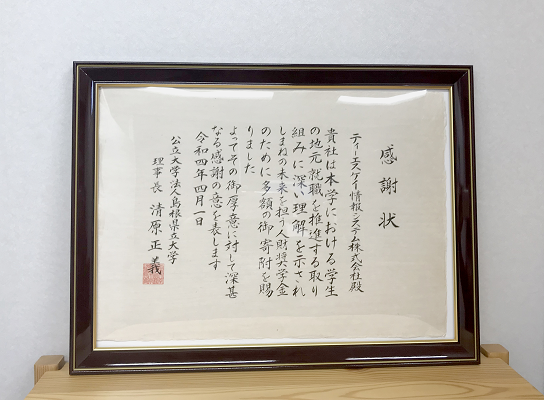 感謝状
ティーエスケイ情報システム株式会社殿
貴社は本学における学生
の地元就職を推進する取り
組みに深い理解を示され
しまねの未来を担う人財奨学金
のために多額の御寄附を賜
りました
よってその御厚意に対して深甚
なる感謝の意を表します
令和四年四月一日
公立大学法人島根県立大学
理事長 清原正義